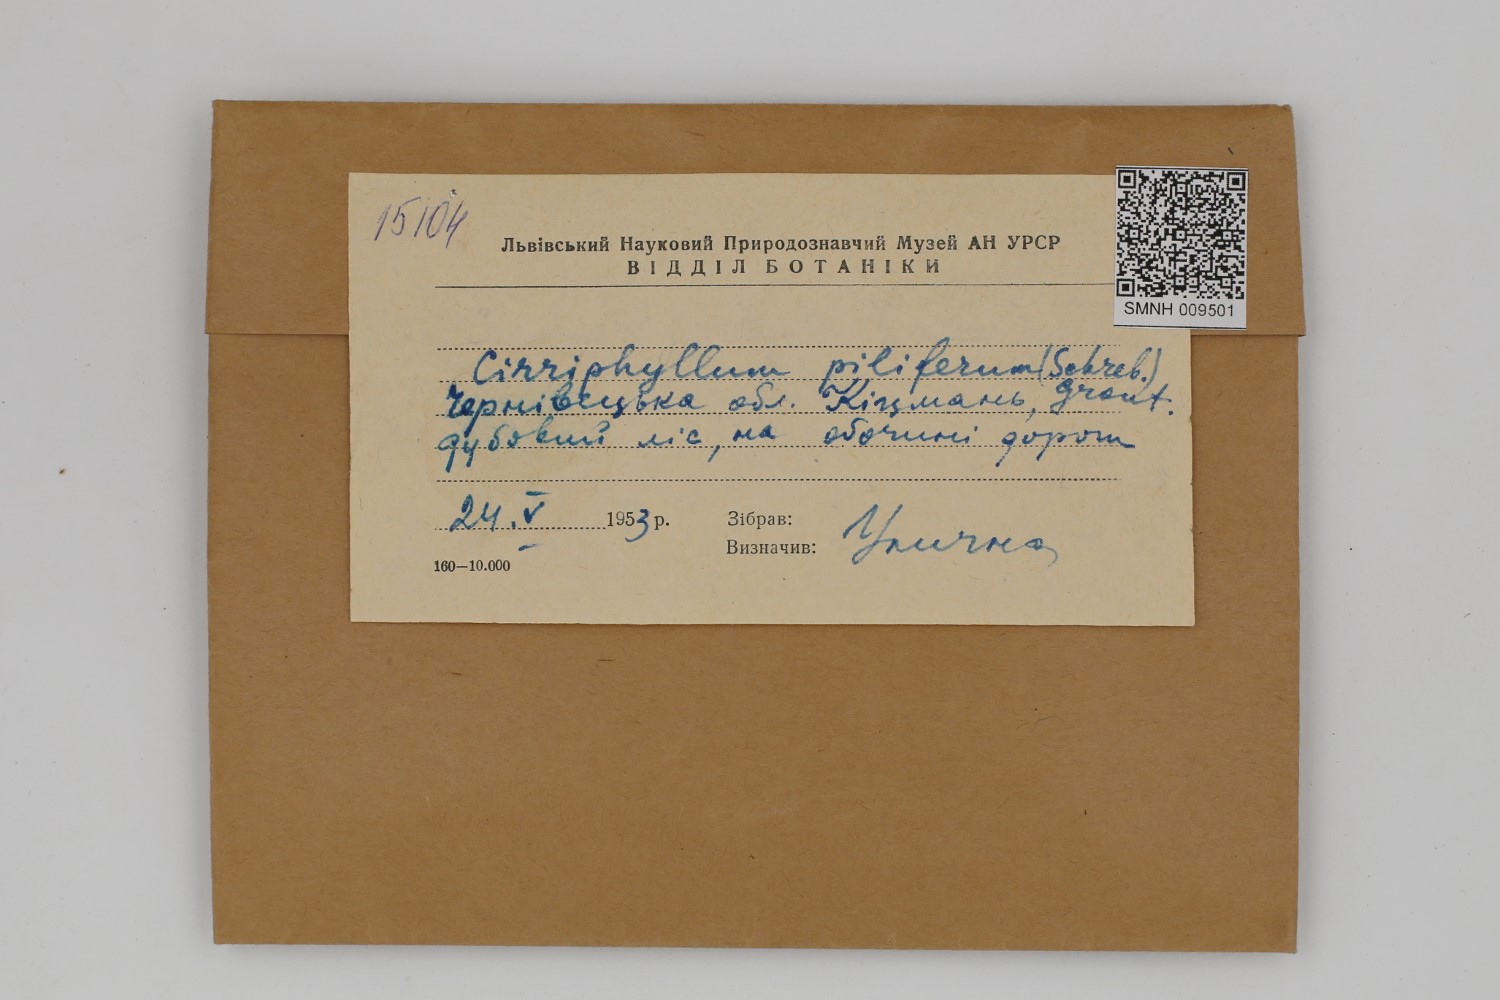 15104
Львівський Науковий Природознавчий Музей АН УРСР
ВІДДІЛ БОТАНІКИ
SMNH 009501
Cirriphyllum piliferum (Schreb.)
Чернівецька обл. Кіцмань, Grout.
дубовий ліс, на обочині дороги
24.V 1953 р.
Зібрав:
Визначив: Улична
160—10.000